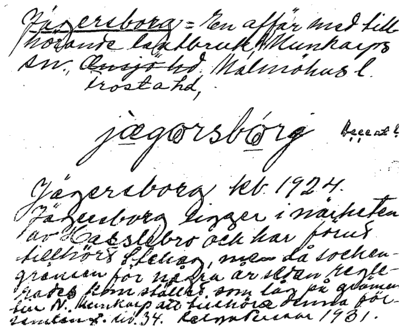 Jägersborg = En affär med till-
hörande lantbruk, Munkarps
sn., Onsjö hd, Malmöhus l.
Frosta hd,
jägǝrsbórg Acc. at l.
Jägersborg kb 1924.
Jägersborg ligger i närheten
av Hasslebro och har förut
tillhört Stehag, men då socken-
gränsen för några år sedan regle-
rades kom stället, som låg på gränsen
till N. Munkarp att tillhöra denna för-
samling.
1931.